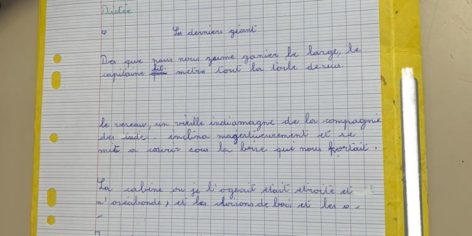 Dictée
Le derniers géant
Des que nous nous gagner le large, le
capitaine fit metre tout la toile dessus.
le vaseau, un vieille indiamagne de la compagnie
des inde, inclina magestueusement et se
mit a courir sous la brise que nous portait.
La cabine ou je l'ogeait était étroite et
et les